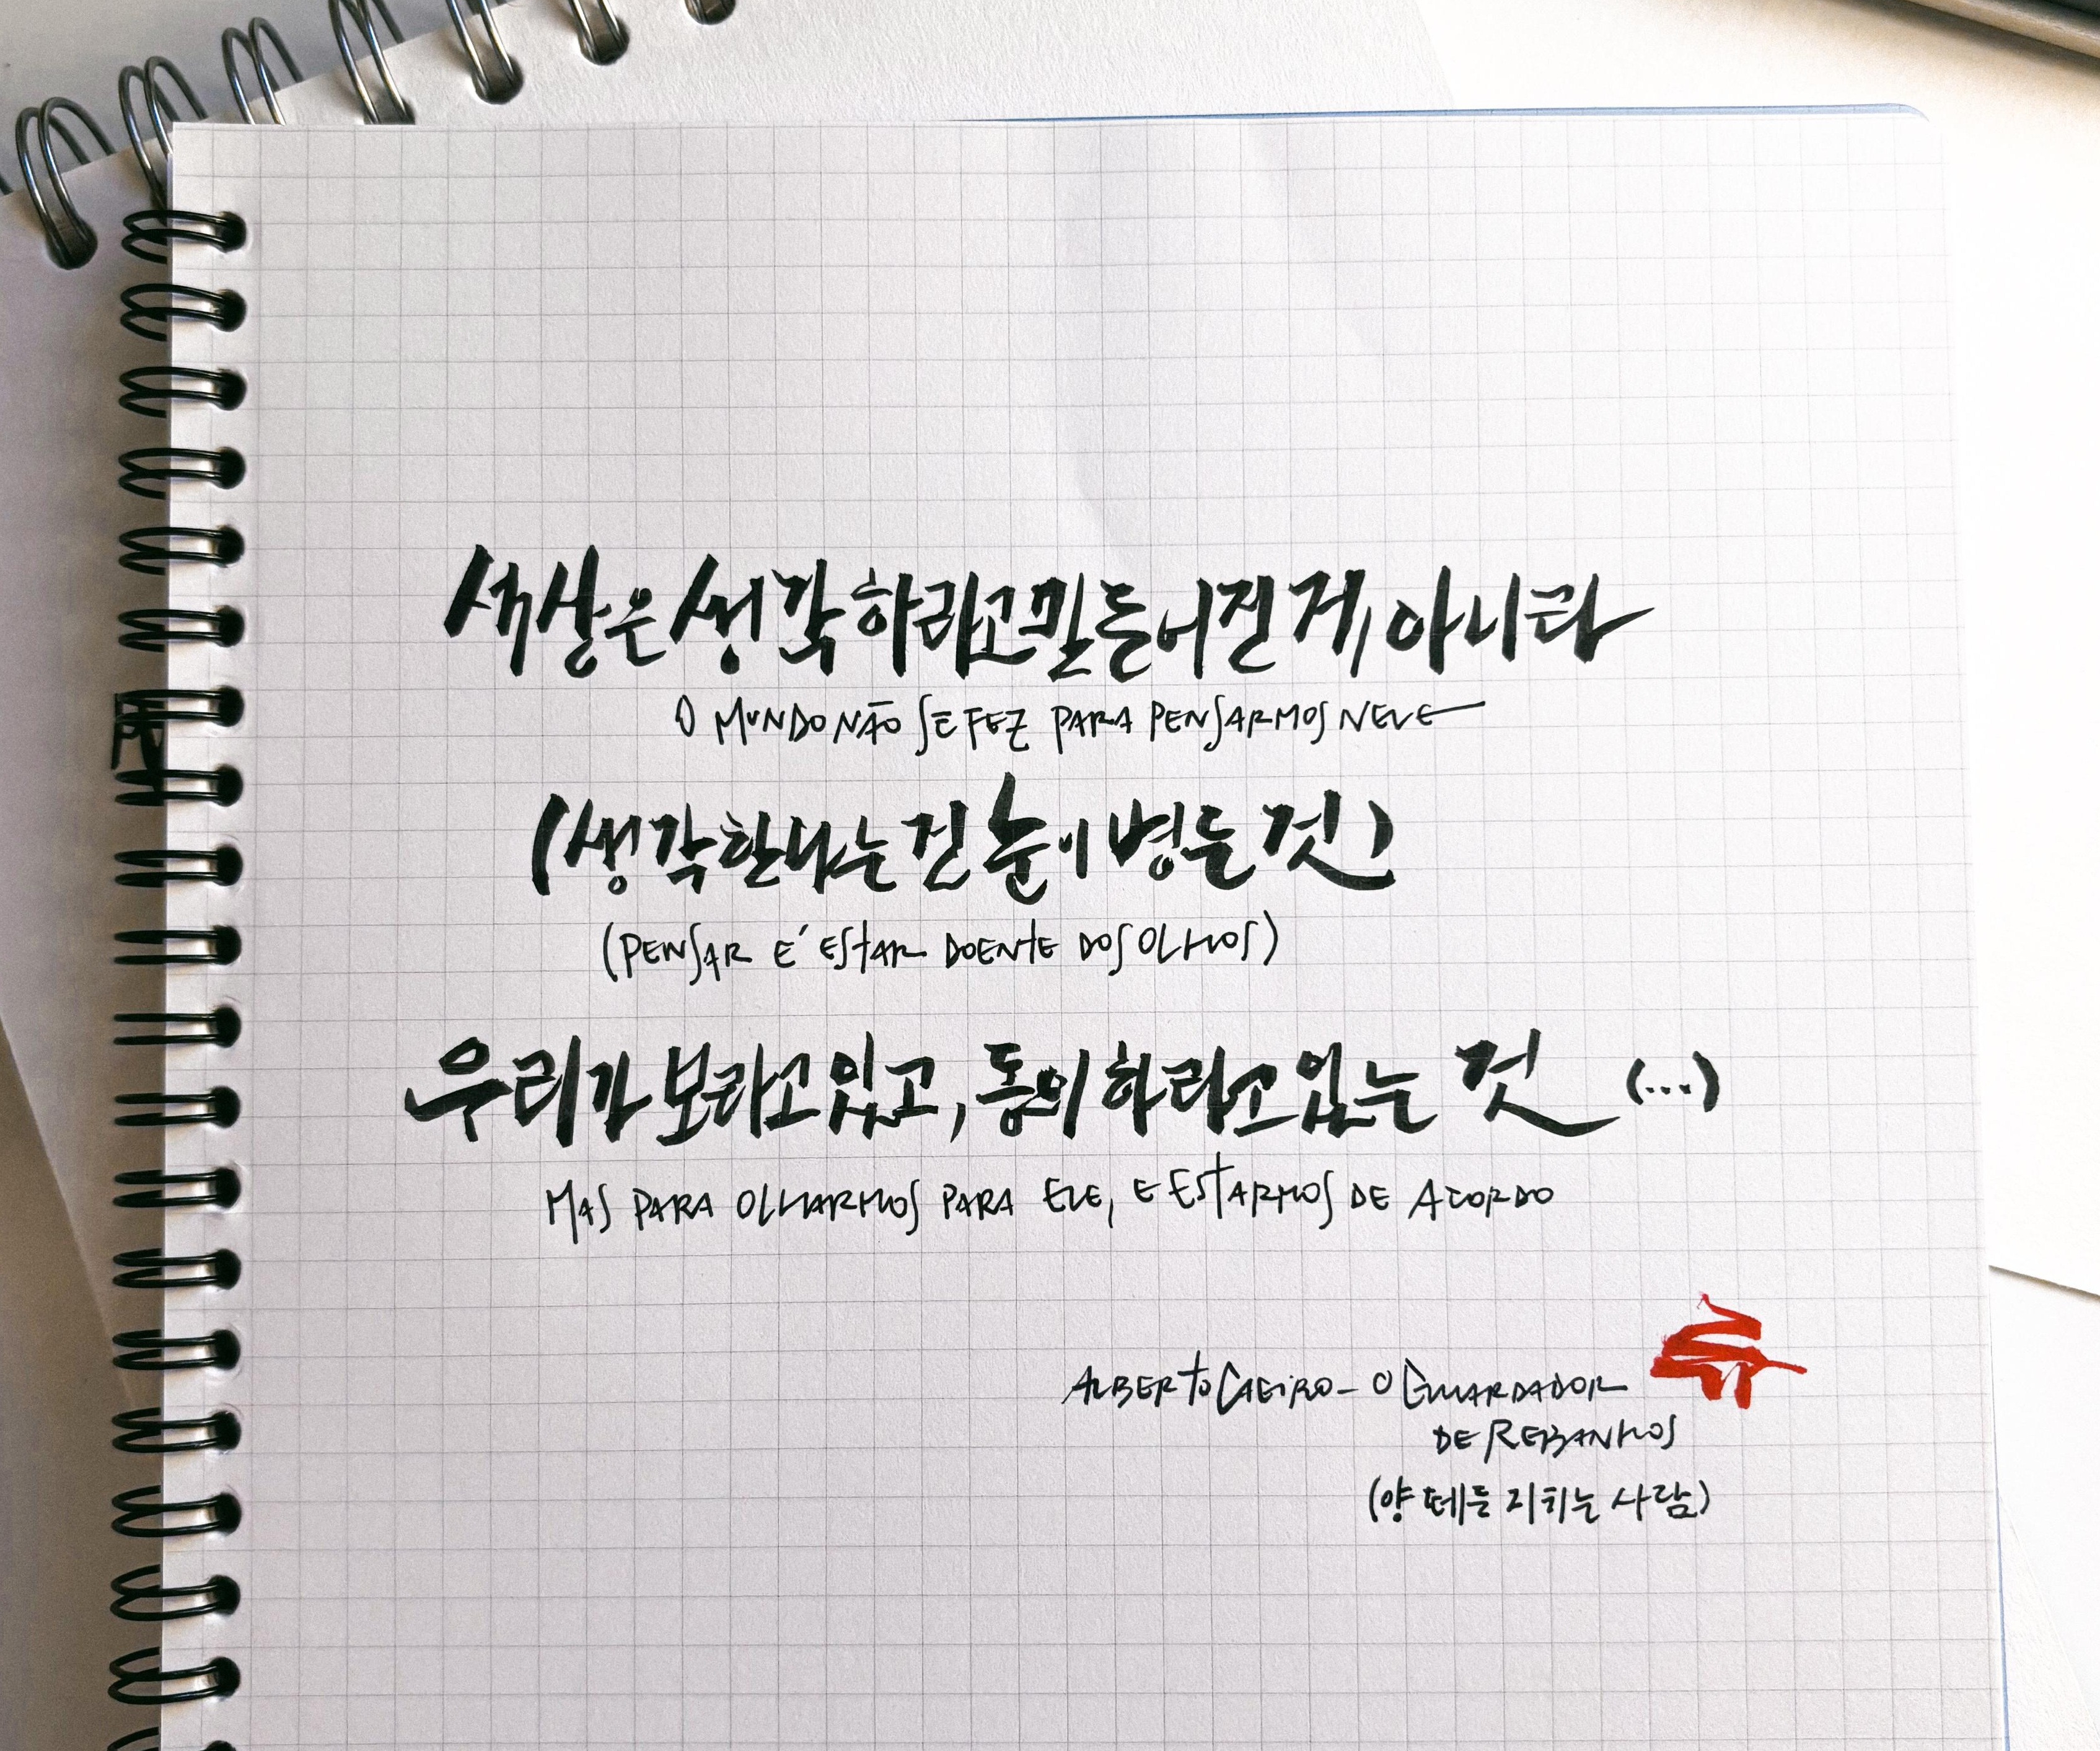 세상은 생각하라고 만들어진 게 아니라
O MUNDO NÃO SE FEZ PARA PENSARMOS NELE
(생각한다는 건 눈이 병든 것)
(PENSAR É ESTAR DOENTE DOS OLHOS)
우리가 보라고 있고, 동의하라고 있는 것 (...)
MAS PARA OLHARMOS PARA ELE, E ESTARMOS DE ACORDO
ALBERTO CAEIRO - O GUARDADOR
DE REBANHOS
(양 떼를 지키는 사람)